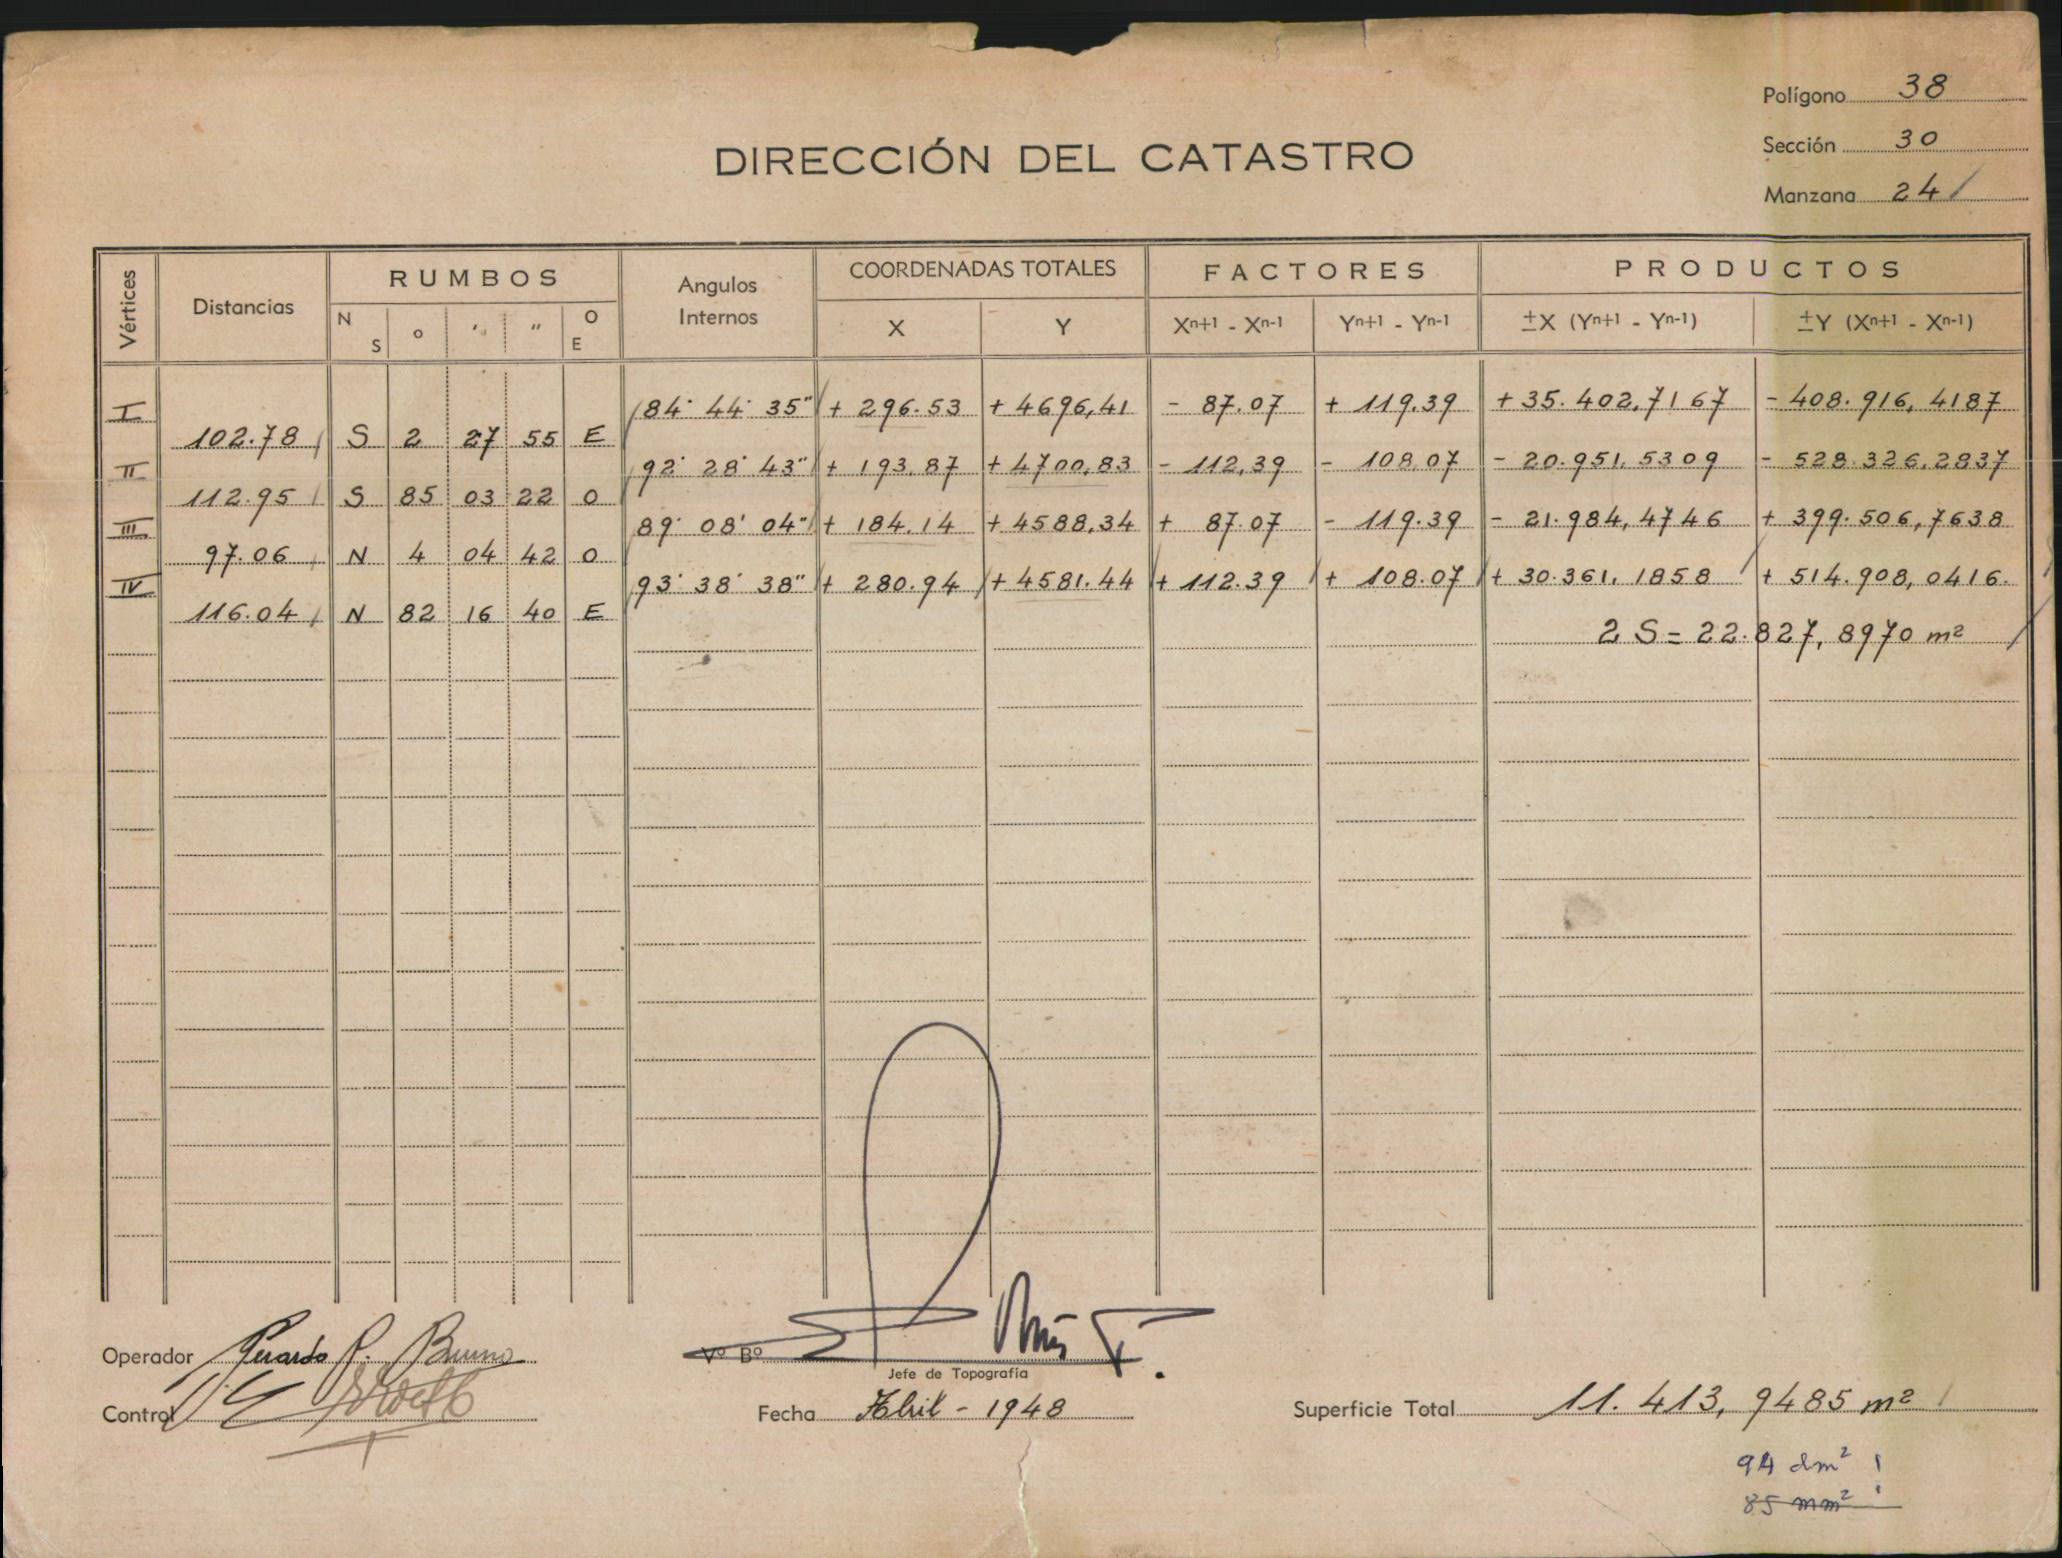 Polígono 38
DIRECCIÓN DEL CATASTRO
Sección 30
Manzana 24
Vértices Distancias RUMBOS Angulos Internos COORDENADAS TOTALES FACTORES PRODUCTOS
N S o ′ ″ O E X Y Xn+1 - Xn-1 Yn+1 - Yn-1 ±X (Yn+1 - Yn-1) ±Y (Xn+1 - Xn-1)
I 84° 44' 35" + 296.53 + 4696,41 - 87.07 + 119.39 + 35.402,7167 - 408.916,4187
102.78 S 2 27 55 E
II 92° 28' 43" + 193.87 + 4700,83 - 112,39 - 108.07 - 20.951,5309 - 528.326,2837
112.95 S 85 03 22 O
III 89° 08' 04" + 184.14 + 4588,34 + 87.07 - 119.39 - 21.984,4746 + 399.506,7638
97.06 N 4 04 42 O
IV 93° 38' 38" + 280.94 + 4581.44 + 112.39 + 108.07 + 30.361,1858 + 514.908,0416
116.04 N 82 16 40 E
2 S = 22.827,8970 m²
Operador Gerardo R. Bruno
Vº Bº
Jefe de Topografía
Control
Fecha Abril - 1948
Superficie Total 11.413,9485 m²
94 dm² !
85 mm² !